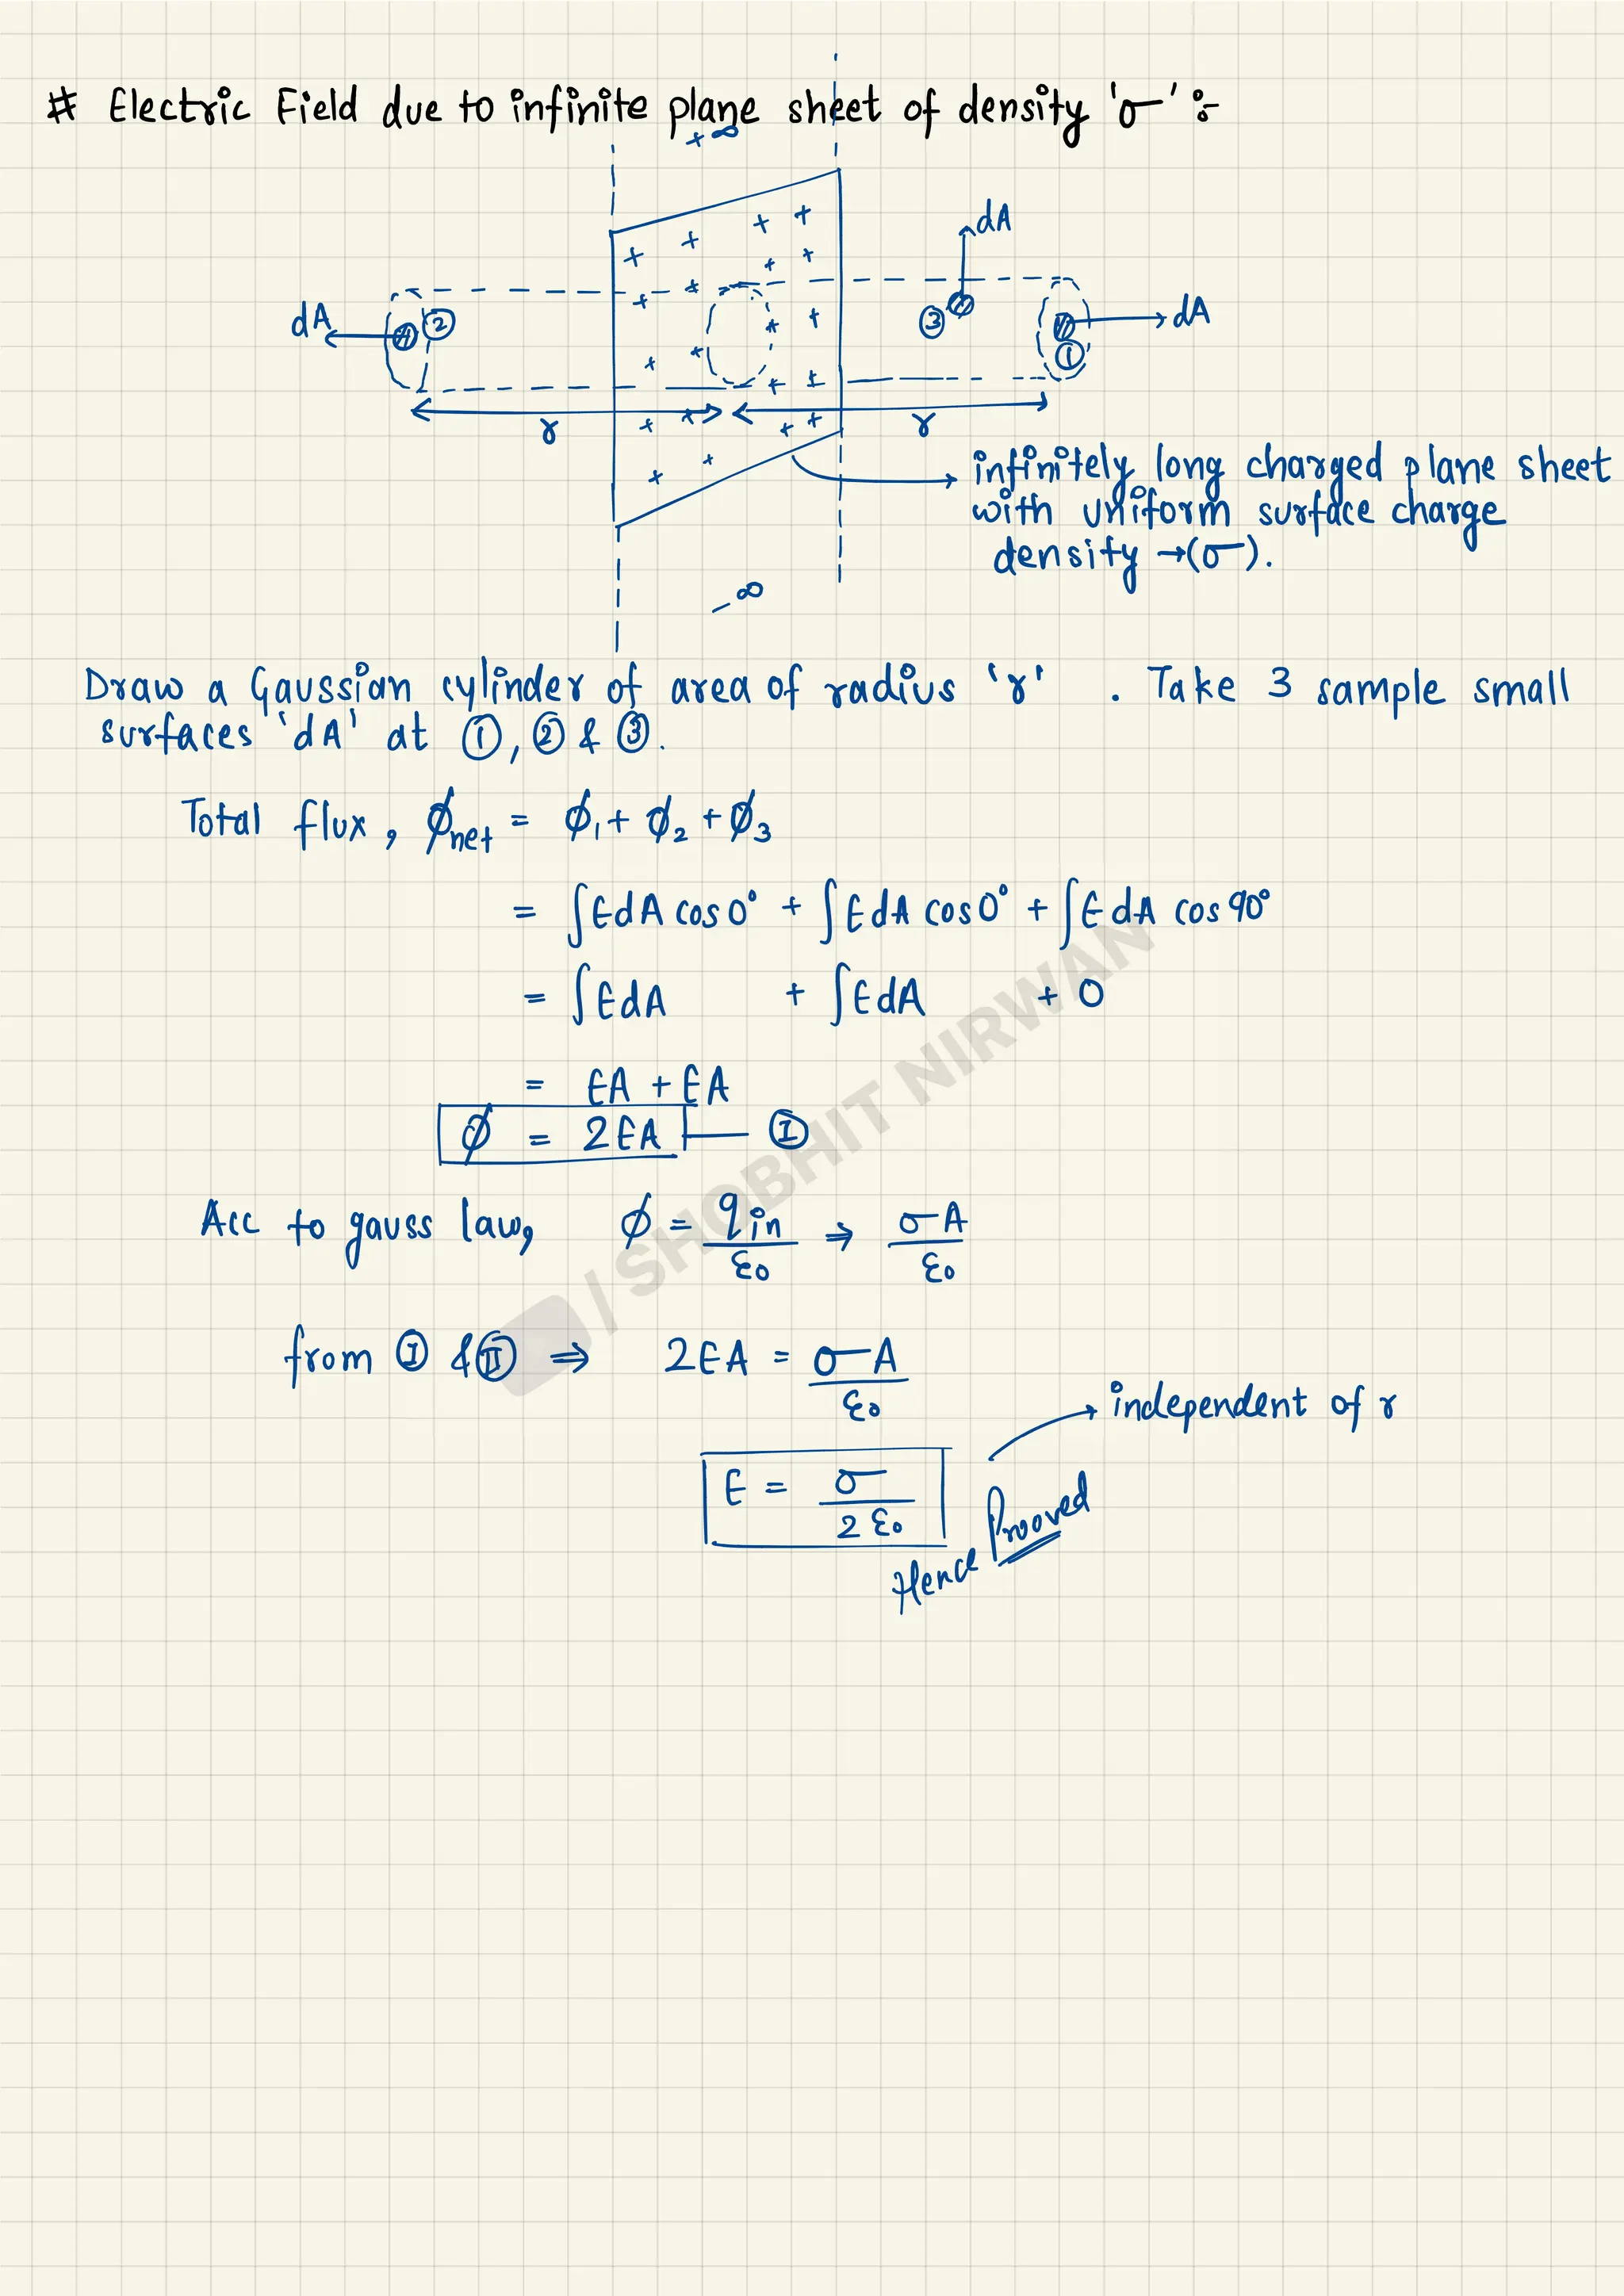 # Electric Field due to infinite plane sheet of density 'σ' :-
+ ∞
+ + + +
dA
dA ② ③ ① dA
r r
infinitely long charged plane sheet
with uniform surface charge
density →(σ).
- ∞
Draw a Gaussian cylinder of area of radius 'r' . Take 3 sample small
surfaces 'dA' at ①, ② & ③.
Total flux, ϕnet = ϕ₁ + ϕ₂ + ϕ₃
= ∫EdA cos 0° + ∫EdA cos 0° + ∫EdA cos 90°
= ∫EdA + ∫EdA + 0
= EA + EA
ϕ = 2EA — Ⓘ
Acc to gauss law, ϕ = qin/ε₀ ⇒ σA/ε₀
from Ⓘ & Ⅱ ⇒ 2EA = σA/ε₀
independent of r
E = σ/2ε₀
Hence Prooved
/ SHOBHIT NIRWAN